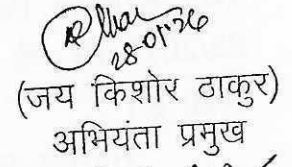 28-01-26
(जय किशोर ठाकुर)
अभियंता प्रमुख